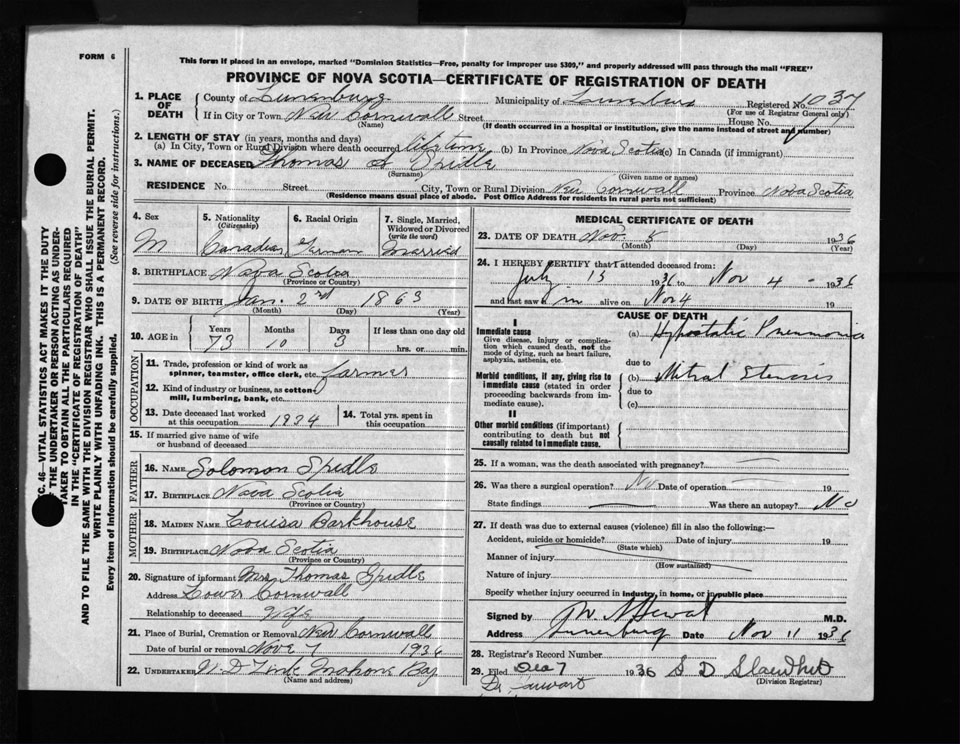 FORM 6
This form if placed in an envelope, marked "Dominion Statistics—Free, penalty for improper use $300," and properly addressed will pass through the mail "FREE"
PROVINCE OF NOVA SCOTIA—CERTIFICATE OF REGISTRATION OF DEATH
1. PLACE OF DEATH
County of Lunenburg Municipality of Lunenburg Registered No. 1037
(For use of Registrar General only)
If in City or Town New Cornwall Street House No.
(Name) (If death occurred in a hospital or institution, give the name instead of street and number)
2. LENGTH OF STAY (in years, months and days)
(a) In City, Town or Rural Division where death occurred lifetime (b) In Province Nova Scotia (c) In Canada (if immigrant)
3. NAME OF DECEASED Thomas A Spidle
(Surname) (Given name or names)
RESIDENCE No. Street City, Town or Rural Division New Cornwall Province Nova Scotia
(Residence means usual place of abode. Post Office Address for residents in rural parts not sufficient)
4. Sex
M
5. Nationality (Citizenship)
Canadian
6. Racial Origin
German
7. Single, Married, Widowed or Divorced (write the word)
Married
8. BIRTHPLACE Nova Scotia
(Province or Country)
9. DATE OF BIRTH Jan. 2nd 1863
(Month) (Day) (Year)
10. AGE in
Years Months Days If less than one day old
73 10 3 hrs. or min.
OCCUPATION
11. Trade, profession or kind of work as spinner, teamster, office clerk, etc. farmer
12. Kind of industry or business, as cotton mill, lumbering, bank, etc.
13. Date deceased last worked at this occupation 1934
14. Total yrs. spent in this occupation
15. If married give name of wife or husband of deceased
FATHER
16. NAME Solomon Spidle
17. BIRTHPLACE Nova Scotia
(Province or Country)
MOTHER
18. MAIDEN NAME Louisa Barkhouse
19. BIRTHPLACE Nova Scotia
(Province or Country)
20. Signature of informant Mrs Thomas Spidle
Address Lower Cornwall
Relationship to deceased Wife
21. Place of Burial, Cremation or Removal New Cornwall
Date of burial or removal Nove 7 1936
22. UNDERTAKER Mahone Bay
(Name and address)
MEDICAL CERTIFICATE OF DEATH
23. DATE OF DEATH Nov. 5 1936
(Month) (Day) (Year)
24. I HEREBY CERTIFY that I attended deceased from:
July 15 1936 to Nov 4 - 1936
and last saw him alive on Nov 4 19
CAUSE OF DEATH
I
Immediate cause
Give disease, injury or complication which caused death, not the mode of dying, such as heart failure, asphyxia, asthenia, etc.
(a) Hypostatic Pneumonia
due to
Morbid conditions, if any, giving rise to immediate cause (stated in order proceeding backwards from immediate cause).
(b) Mitral Stenosis
due to
(c)
II
Other morbid conditions (if important) contributing to death but not causally related to immediate cause.
25. If a woman, was the death associated with pregnancy?
26. Was there a surgical operation? No Date of operation 19
State findings Was there an autopsy? No
27. If death was due to external causes (violence) fill in also the following:—
Accident, suicide or homicide? Date of injury 19
(State which)
Manner of injury
(How sustained)
Nature of injury
Specify whether injury occurred in industry, in home, or in public place
Signed by M.D.
Address Lunenburg Date Nov 11 1936
28. Registrar's Record Number
29. Filed Dec 7 1936 S D
(Division Registrar)
C. 46—VITAL STATISTICS ACT MAKES IT THE DUTY
THE UNDERTAKER OR PERSON ACTING AS UNDERTAKER TO OBTAIN ALL THE PARTICULARS REQUIRED
IN THE "CERTIFICATE OF REGISTRATION OF DEATH"
AND TO FILE THE SAME WITH THE DIVISION REGISTRAR WHO SHALL ISSUE THE BURIAL PERMIT.
WRITE PLAINLY WITH UNFADING INK. THIS IS A PERMANENT RECORD.
Every item of information should be carefully supplied. (See reverse side for instructions.)